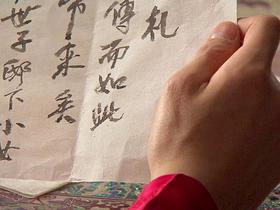 札
傳而如此
來矣
世子邸下小女